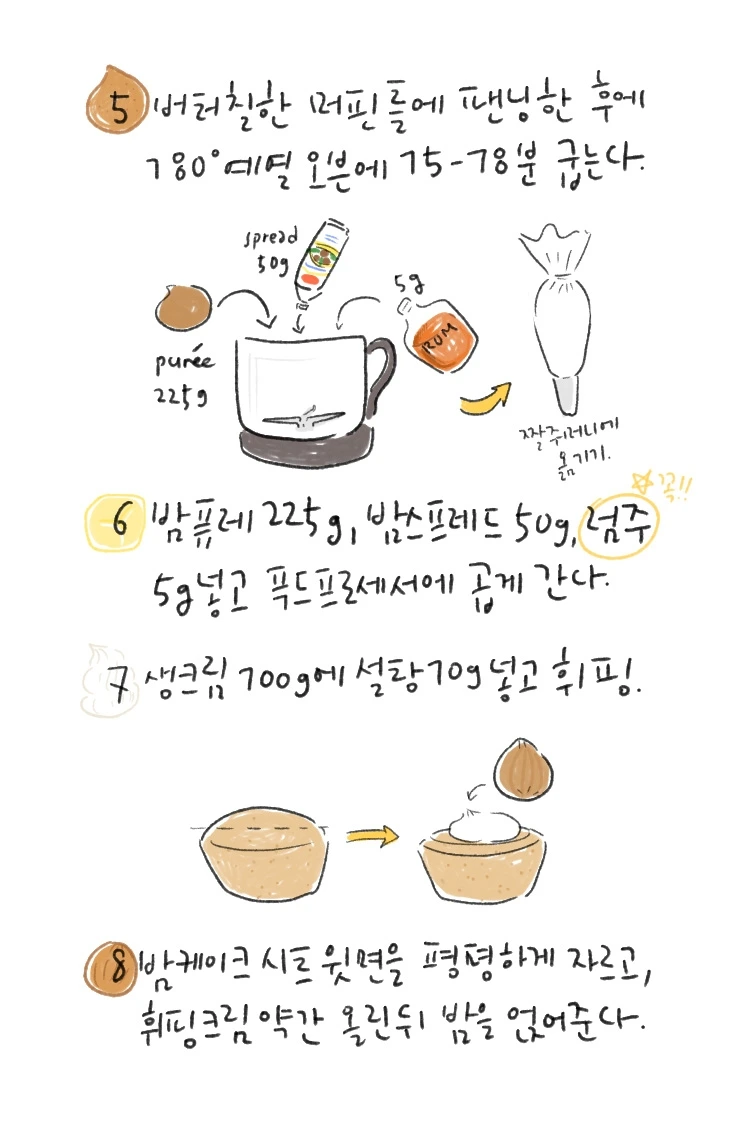 5 버터칠한 머핀틀에 팬닝한 후에
180° 예열 오븐에 15-18분 굽는다.
spread
50g
5g
RUM
purée
225g
짤주머니에
옮기기.
꼭!!
6 밤퓨레 225g, 밤스프레드 50g, 럼주
5g넣고 푸드프로세서에 곱게 간다.
7 생크림 100g에 설탕10g 넣고 휘핑.
8 밤케이크 시트 윗면을 평평하게 자르고,
휘핑크림 약간 올린뒤 밤을 얹어준다.